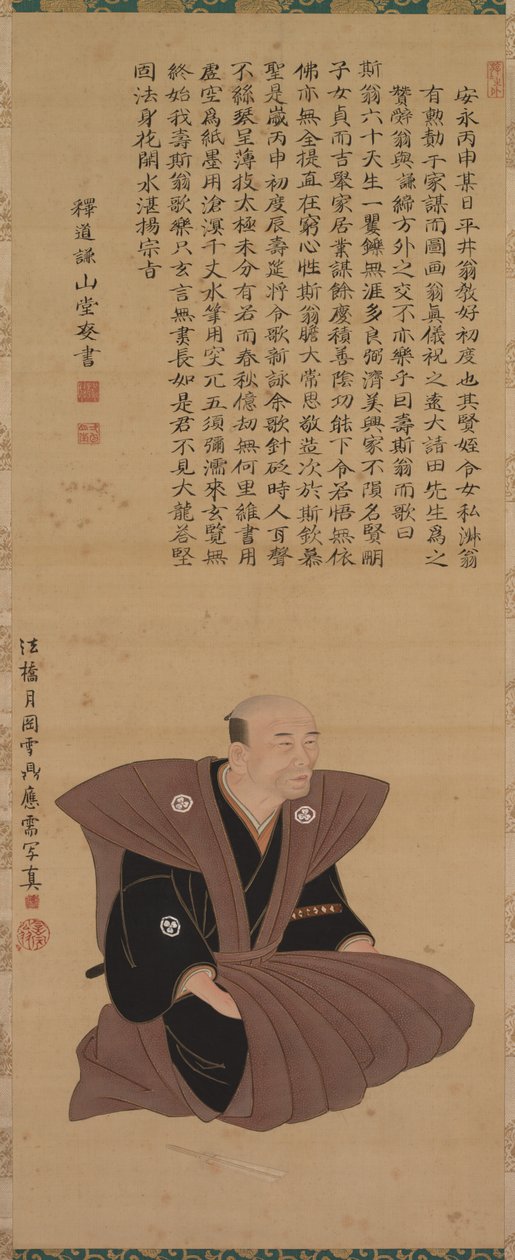 安永丙申某日平井翁敎好初度也其賢姪令女私淑翁
有勲勤于家謀而圖画翁眞儀祝之遠大請田先生爲之
贊辭翁與謙締方外之交不亦樂乎曰壽斯翁而歌曰
斯翁六十天生一矍鑠無涯多良弼濟美興家不隕名賢嗣
子女貞而吉舉家居業謀餘慶積善陰功能下令名悟無依
佛亦無全提直在窮心性斯翁膽大常思敬造次於斯欽慕
聖是歳丙申初度辰壽筵将令歌新詠余歌針砭時人耳聲
不絲琴呈薄技太極未分有若而春秋億劫無何里維書用
虚空爲紙墨用滄溟千丈水筆用突兀五須彌濡來玄覽無
終始我壽斯翁歌樂只玄言無長如是君不見大龍荅堅
固法身花開水湛揚宗旨
釋道謙山堂叜書
法橋月岡雪鼎應需写真